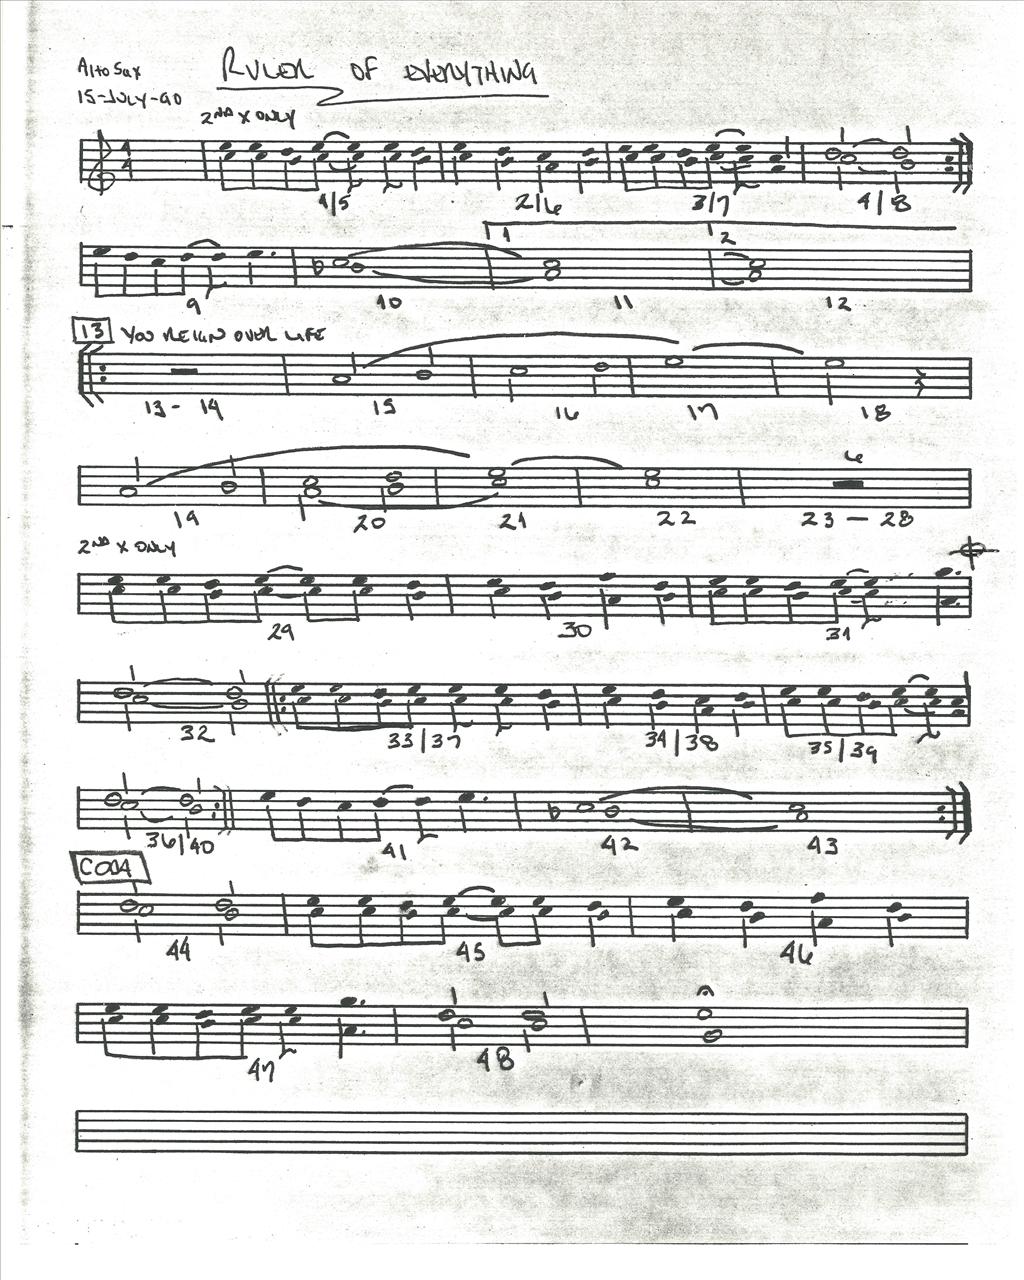 Alto Sax
RULER OF EVERYTHING
15-JULY-90
2ND X ONLY
4
4
1/5 2/6 3/7 4/8
1 2
9 10 11 12
13 YOU REIGN OVER LIFE
13 - 14 15 16 17 18
6
19 20 21 22 23 - 28
2ND X ONLY
29 30 31
32 33/37 34/38 35/39
36/40 41 42 43
CODA
44 45 46
47 48